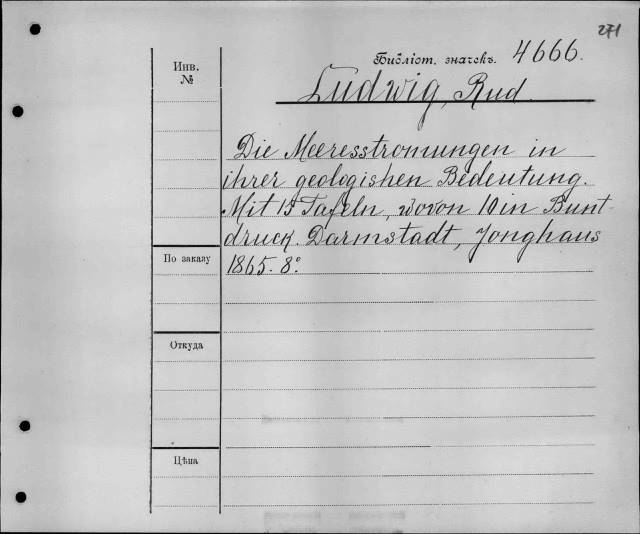 271
Библіот. значекъ. 4666.
Инв.
№
Ludwig, Rud.
Die Meeresstromungen in
ihrer geologishen Bedeutung.
Mit 15 Tafeln, wovon 10 in Bunt-
druck. Darmstadt, Jonghaus
По заказу
1865. 8°.
Откуда
Цѣна